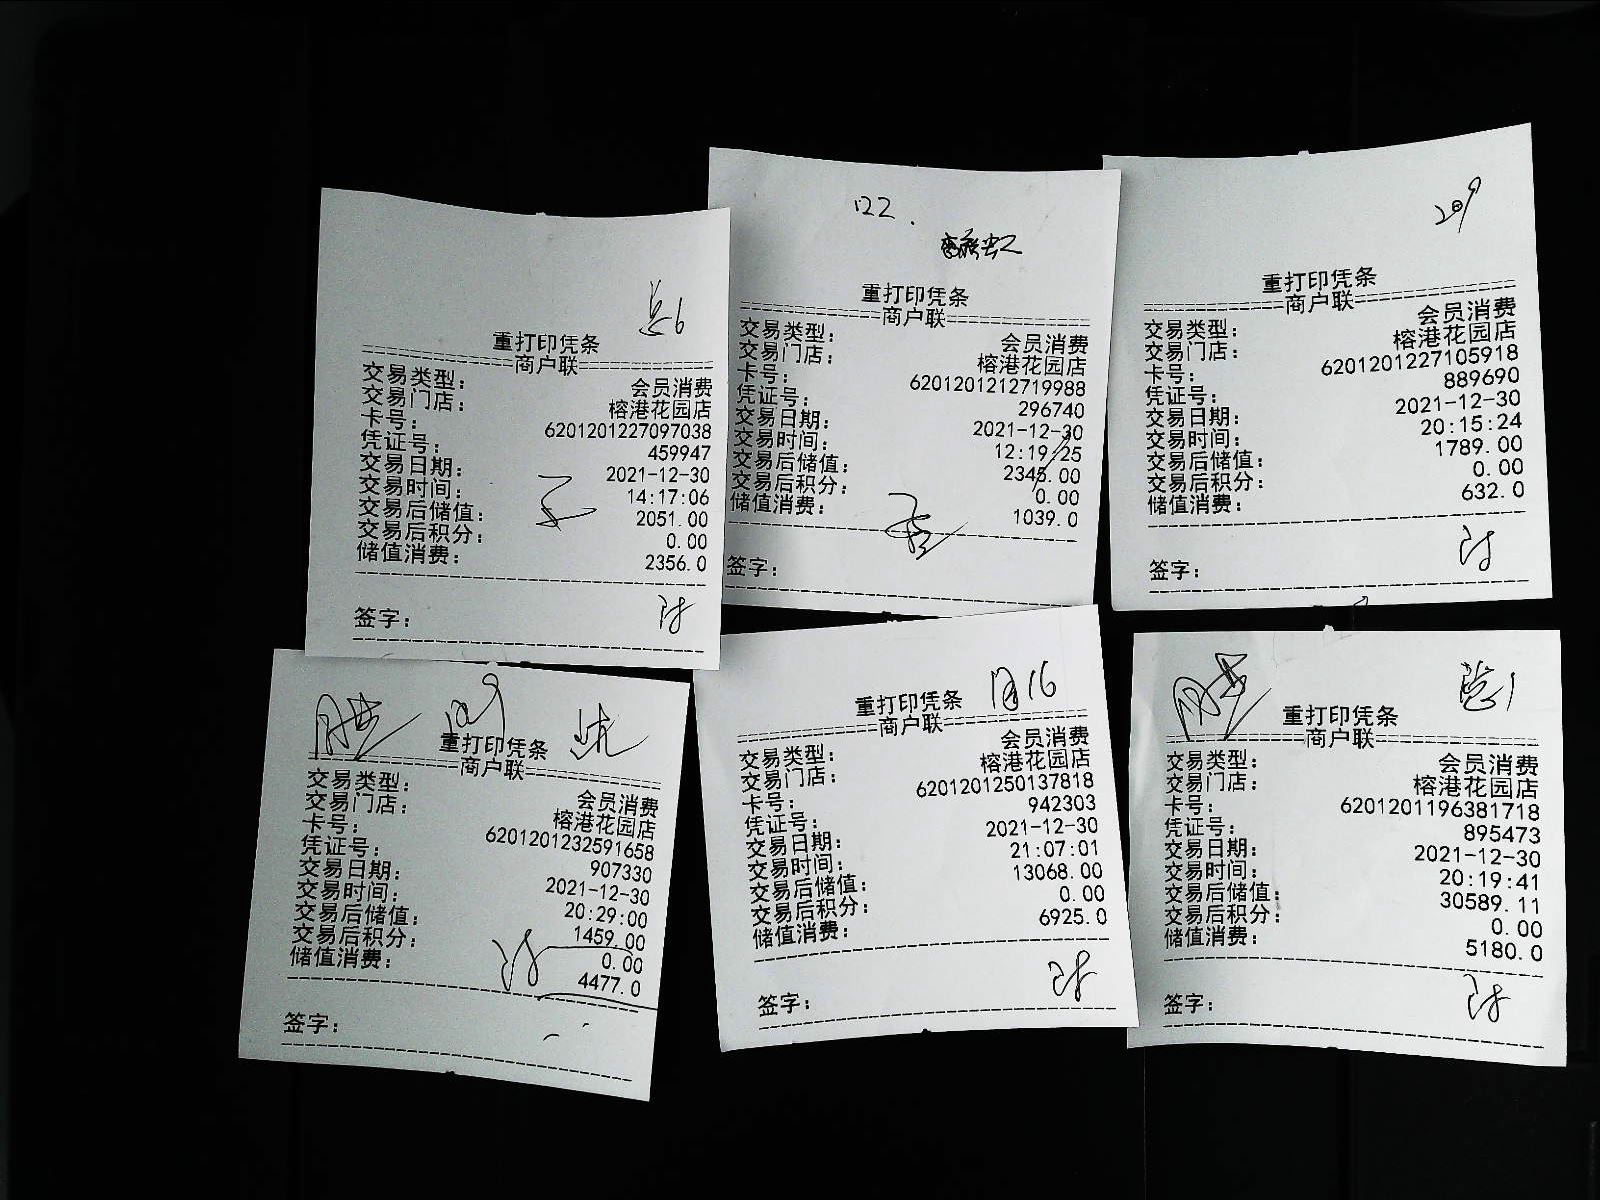 6
重打印凭条
==========商户联==========
交易类型： 会员消费
交易门店： 榕港花园店
卡号： 6201201227097038
凭证号： 459947
交易日期： 2021-12-30
交易时间： 14:17:06
交易后储值： 2051.00
交易后积分： 0.00
储值消费： 2356.0
签字：
122.
重打印凭条
==========商户联==========
交易类型： 会员消费
交易门店： 榕港花园店
卡号： 6201201212719988
凭证号： 296740
交易日期： 2021-12-30
交易时间： 12:19:25
交易后储值： 2345.00
交易后积分： 0.00
储值消费： 1039.0
签字：
209
重打印凭条
==========商户联==========
交易类型： 会员消费
交易门店： 榕港花园店
卡号： 6201201227105918
凭证号： 889690
交易日期： 2021-12-30
交易时间： 20:15:24
交易后储值： 1789.00
交易后积分： 0.00
储值消费： 632.0
签字：
重打印凭条
==========商户联==========
交易类型： 会员消费
交易门店： 榕港花园店
卡号： 6201201232591658
凭证号： 907330
交易日期： 2021-12-30
交易时间： 20:29:00
交易后储值： 1459.00
交易后积分： 0.00
储值消费： 4477.0
签字：
16
重打印凭条
==========商户联==========
交易类型： 会员消费
交易门店： 榕港花园店
卡号： 6201201250137818
凭证号： 942303
交易日期： 2021-12-30
交易时间： 21:07:01
交易后储值： 13068.00
交易后积分： 0.00
储值消费： 6925.0
签字：
1
重打印凭条
==========商户联==========
交易类型： 会员消费
交易门店： 榕港花园店
卡号： 6201201196381718
凭证号： 895473
交易日期： 2021-12-30
交易时间： 20:19:41
交易后储值： 30589.11
交易后积分： 0.00
储值消费： 5180.0
签字：